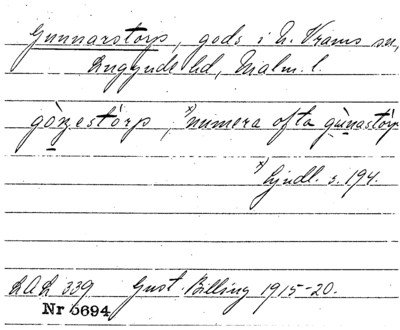 Gunnarstorp, gods i N. Vrams sn,
Luggude hd, Malm. l.
gònestòrp, x) numera ofta gùnastòrp
x) Ljudl. s. 194.
LAL 339 Gust. Billing 1915-20.
Nr 5694